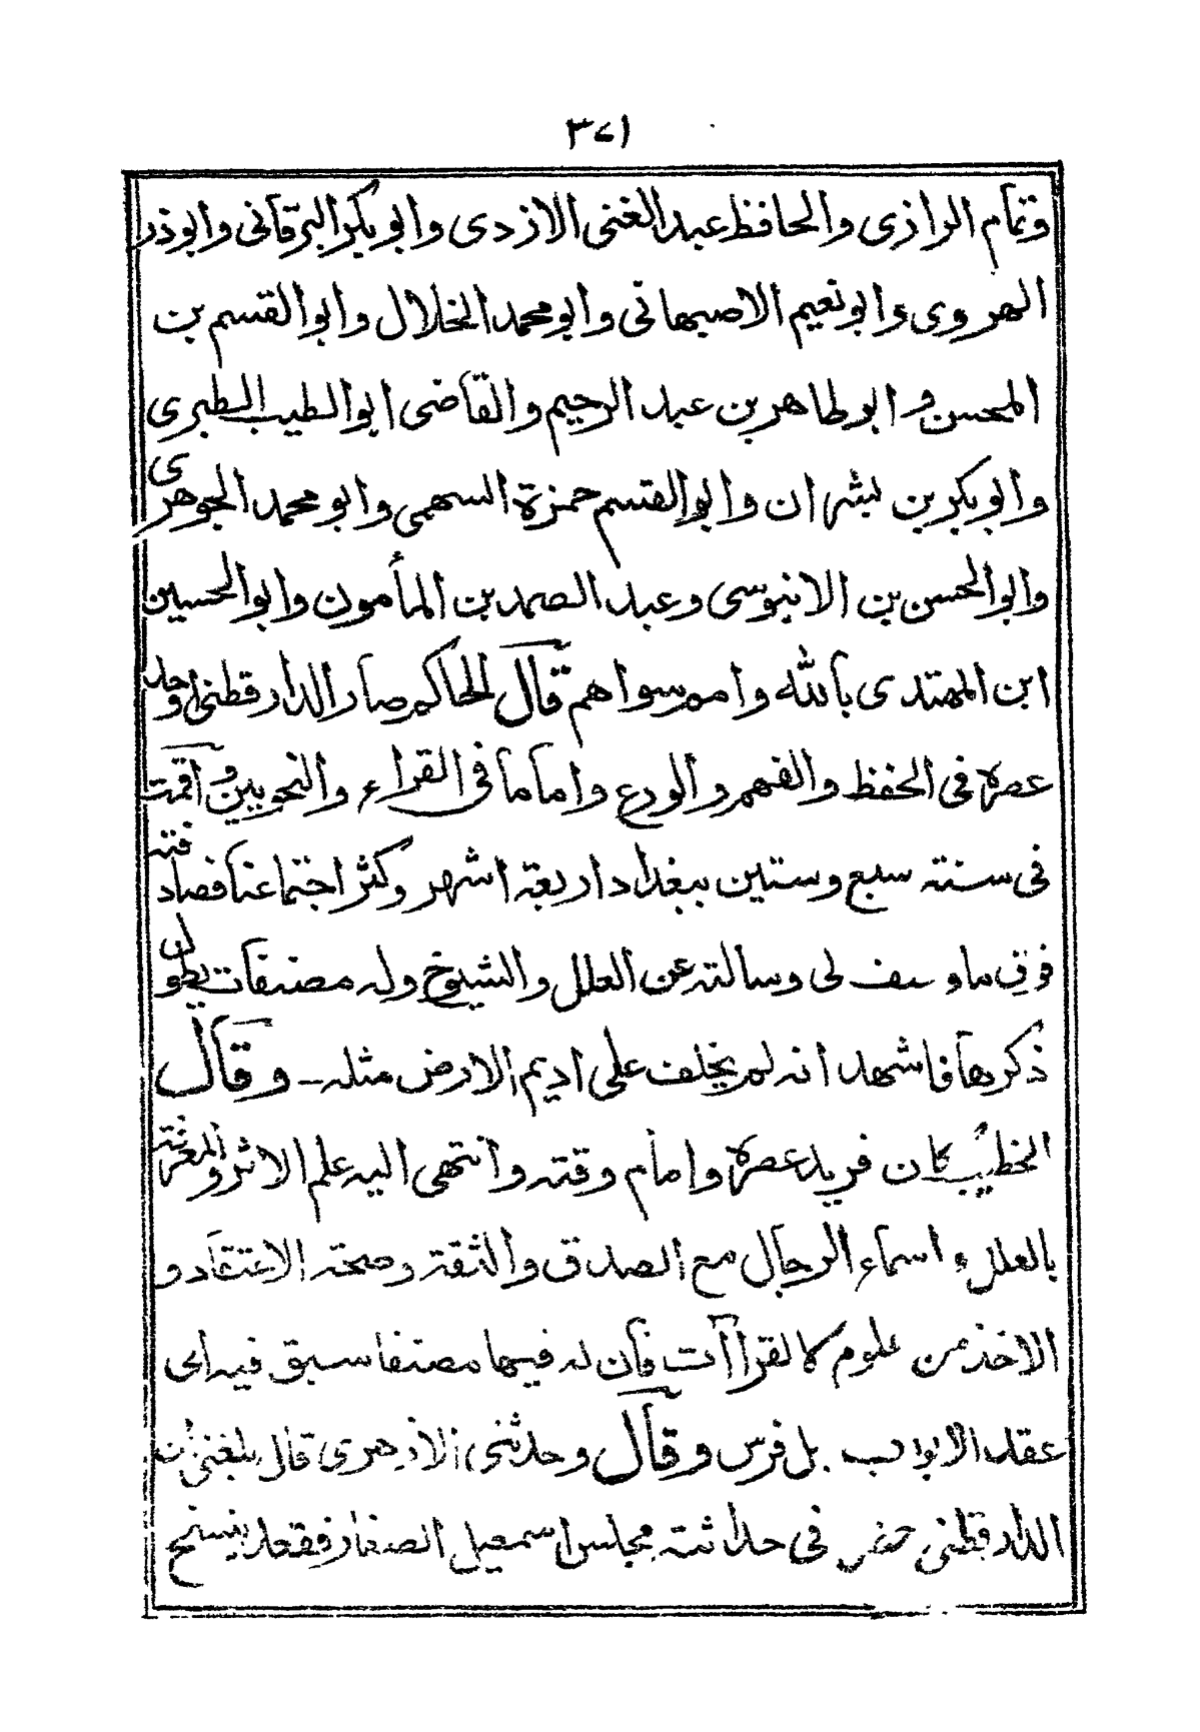 ٣٧١
وتمام الرازى والحافظ عبد الغنى الازدى وابو بكر البرقانى وابوذر
الهروى وابو نعيم الاصبهانى وابو محمد الخلال وابو القسم بن
المحسن وابو طاهر بن عبد الرحيم والقاضى ابو الطيب الطبرى
وابو بكر بن بشران وابو القسم حمزة السهمى وابو محمد الجوهرى
وابو الحسن بن الابنوسى وعبد الصمد بن المأمون وابو الحسين
ابن المهتدى بالله وامم سواهم قال الحاكم صار الدارقطنى اوحد
عصره فى الحفظ والفهم والورع واماما فى القراء والنحويين واقمت
فى سنة سبع وستين ببغداد اربعة اشهر وكثر اجتماعنا فصادفته
فوق ما وصف لى وسالته عن العلل والشيوخ وله مصنفات يطول
ذكرها فاشهد انه لم يخلف على اديم الارض مثله ــ وقال
الخطيب كان فريد عصره وامام وقته وانتهى اليه علم الاثر والمعرفة
بالعلل واسماء الرجال مع الصدق والثقة وصحة الاعتقاد و
الاخذ من علوم كالقراآت فان له فيها مصنفا سبق فيه الى
عقد الابواب بل فرس وقال وحدثنى الازهرى قال بلغنى ان
الدارقطنى حضر فى حداثته مجلس اسمعيل الصفار فقعد ينسخ